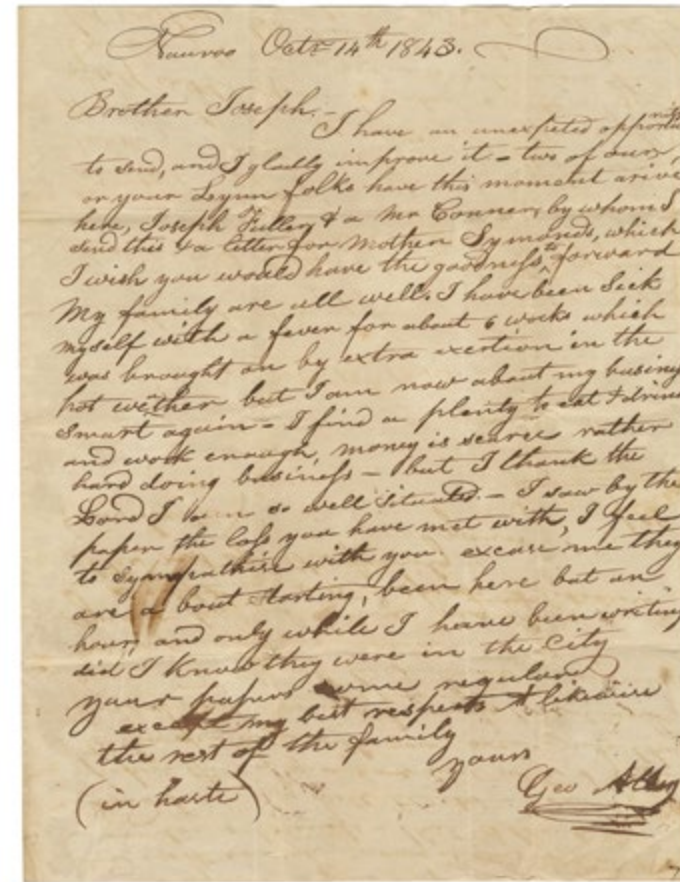 Nauvoo Octr 14th 1843.
Brother Joseph. –
I have an unexpeted opportu
nity
to send, and I gladly improve it – two of our,
or your Lynn folks have this moment arive
here, Joseph Fuller & a Mr Conner, by whom I
send this & a letter for Mother Symonds, which
I wish you would have the goodness to forward
My family are all well. I have been sick
myself with a fever for about 6 weeks which
was brought on by extra exertion in the
hot wether but I am now about my busing
smart again – I find a plenty to eat & drink
and work enough, money is scarce rather
hard doing business – but I thank the
Lord I am so well situated – I saw by the
paper the loss you have met with, I feel
to sympathise with you. excuse me they
are a bout starting, been here but an
hour, and only while I heave been writing
did I know they were in the City
your papers come regular
except my best respects & likewise
the rest of the family
yours
(in haste)
Geo Alley